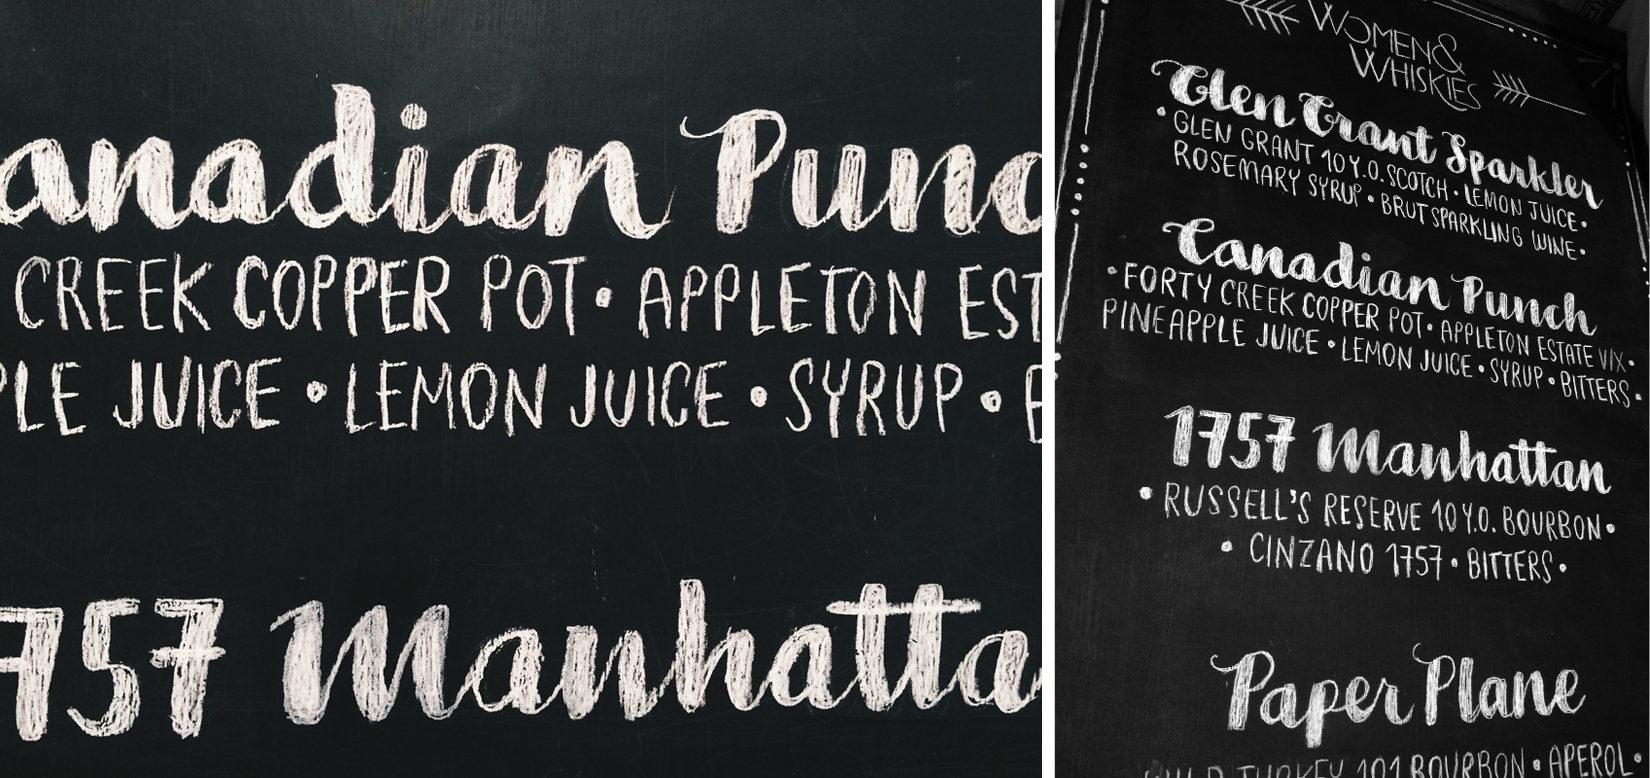 anadian Punc
CREEK COPPER POT • APPLETON EST
PLE JUICE • LEMON JUICE • SYRUP •
757 Manhatta
WOMEN &
WHISKIES
Glen Grant Sparkler
• GLEN GRANT 10 Y.O. SCOTCH • LEMON JUICE •
ROSEMARY SYRUP • BRUT SPARKLING WINE •
Canadian Punch
• FORTY CREEK COPPER POT • APPLETON ESTATE V/X •
PINEAPPLE JUICE • LEMON JUICE • SYRUP • BITTERS •
1757 Manhattan
• RUSSELL'S RESERVE 10 Y.O. BOURBON •
• CINZANO 1757 • BITTERS •
Paper Plane
WILD TURKEY 101 BOURBON • APEROL •